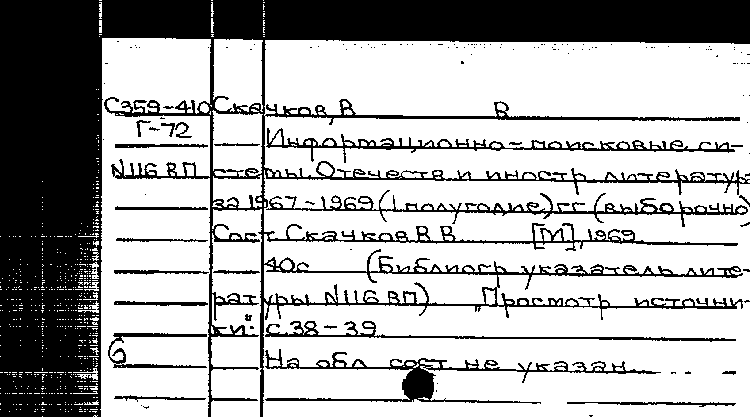 С359-410 Скачков, В В
Г-72 Информационно-поисковые си-
N116 ВП стемы. Отечеств и иностр литератур
за 1967-1969 (I полугодие) гг (выборочно)
Сост Скачков В В [М], 1969
40с (Библиогр указатель лите-
ратуры N116 ВП). „Просмотр источни-
ки": с.38-39
6 На обл сост не указан